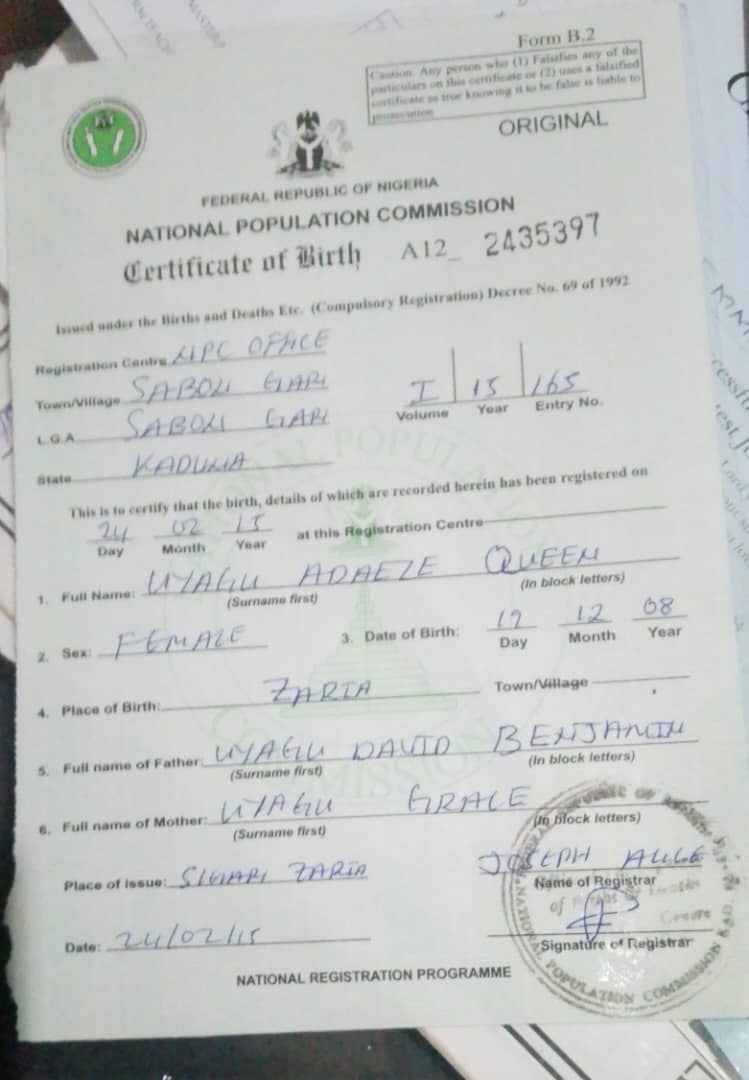 Form B.2
Caution: Any person who (1) Falsifies any of the
particulars on this certificate or (2) uses a falsified
certificate as true knowing it to be false is liable to
prosecution
ORIGINAL
FEDERAL REPUBLIC OF NIGERIA
NATIONAL POPULATION COMMISSION
Certificate of Birth A12_ 2435397
Issued under the Births and Deaths Etc. (Compulsory Registration) Decree No. 69 of 1992
Registration Centre NPC OFFICE
Town/Village SABON GARI
L.G.A SABON GARI
I 15 165
Volume Year Entry No.
State KADUNA
This is to certify that the birth, details of which are recorded herein has been registered on
24 02 15 at this Registration Centre
Day Month Year
1. Full Name: UYAGU ADAEZE QUEEN
(Surname first) (In block letters)
2. Sex: FEMALE 3. Date of Birth: 12 08
Day Month Year
4. Place of Birth: ZARIA Town/Village
5. Full name of Father: UYAGU DAVID BENJAMIN
(Surname first) (In block letters)
6. Full name of Mother: UYAGU GRACE
(Surname first) (In block letters)
Place of issue: ZARIA JOSEPH
Name of Registrar
Date: 24/02/15
Signature of Registrar
NATIONAL POPULATION COMMISSION
NATIONAL REGISTRATION PROGRAMME